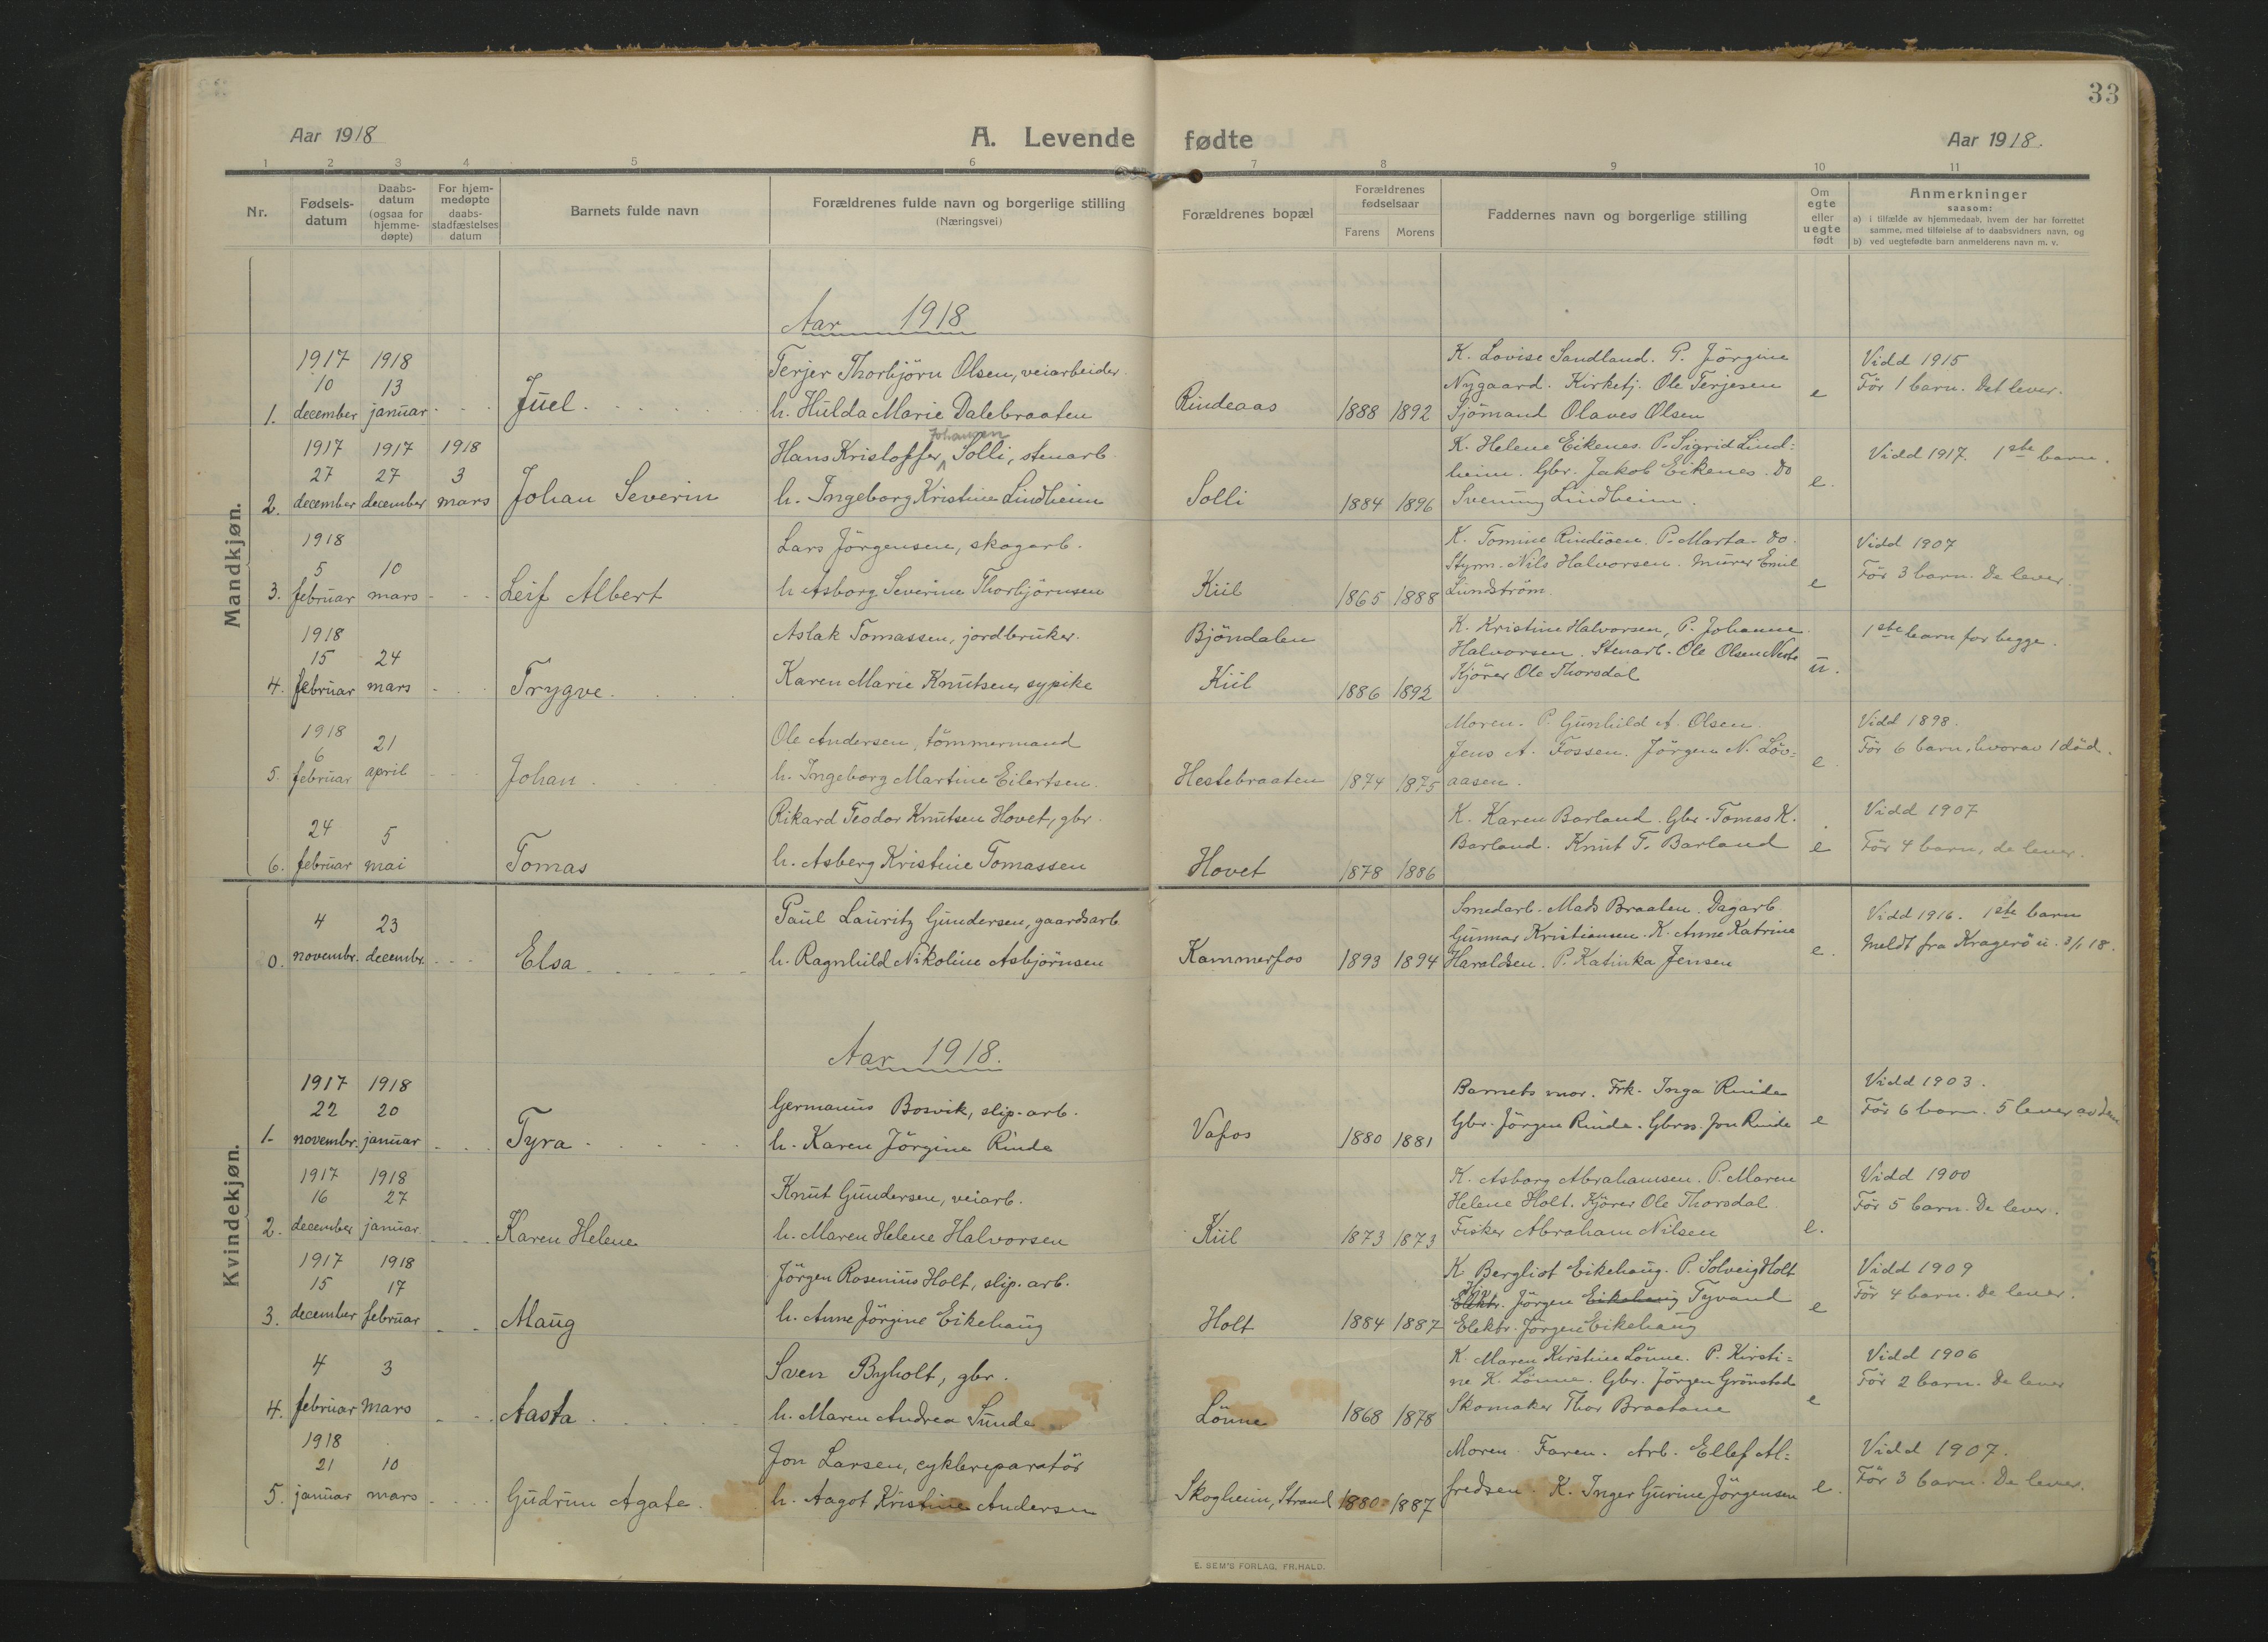 33
Aar 1918
A. Levende fødte
Aar 1918.
1 2 3 4 5 6 7 8 9 10 11
Nr.
Fødsels-
datum
Daabs-
datum
(ogsaa for
hjemme-
døpte)
For hjem-
medøpte
daabs-
stadfæstelses
datum
Barnets fulde navn
Forældrenes fulde navn og borgerlige stilling
(Næringsvei)
Forældrenes bopæl
Forældrenes
fødselsaar
Farens Morens
Faddernes navn og borgerlige stilling
Om
egte
eller
uegte
født
Anmerkninger
saasom:
a) i tilfælde av hjemmedaab, hvem der har forrettet
samme, med tilføielse af to daabsvidners navn, og
b) ved uegtefødte barn anmelderens navn m. v.
Mandkjøn.
Aar 1918
1917 1918
10 13
1. december januar
Juel
Terjer Thorbjörn Olsen, veiarbeider
h. Hulda Marie Dalebraaten
Rindeaas
1888 1892
K. Lovise Sandland. P. Jörgine
Nygaard. Kirketj. Ole Terjesen
Sjömand Olaves Olsen
e
Vidd 1915
För 1 barn. Det lever.
1917 1917 1918
27 27 3
2. december december mars
Johan Severin
Johansen
Hans Kristoffer Solli, stenarb.
h. Ingeborg Kristine Lindheim
Solli
1884 1896
K. Helene Eikenes. P. Sigrid Lind=
heim. Gbr. Jakob Eikenes. Do
Svenung Lindheim.
e.
Vidd 1917. 1ste barn.
1918
5 10
3. februar mars
Leif Albert
Lars Jörgensen, skogarb.
h Asborg Severine Thorbjörnsen
Kiil
1865 1888
K. Tomine Rindöen. P. Marta do.
Styrm. Nils Halvorsen. Murer Emil
Lundström.
e
Vidd 1907
För 3 barn. De lever.
1918
15 24
4. februar mars
Trygve.
Aslak Tomassen, jordbruker.
Karen Marie Knutsen, sypike
Bjöndalen
Kiil
1886 1892
K. Kristine Halvorsen, P. Johanne
Halvorsen. Stenarb. Ole Olsen
Kjörer Ole Thorsdal
u.
1ste barn for begge.
1918
6 21
5. februar april
Johan
Ole Andersen, tömmermand
h. Ingeborg Martine Eilertsen.
Hestebraaten
1874 1875
Moren. P. Gunhild A. Olsen.
Jens A. Fossen. Jörgen N. Löv=
aasen.
e.
Vidd 1898.
För 6 barn, hvorav 1 död.
24 5
6. februar mai
Tomas
Rikard Teodor Knutsen Hovet, gbr.
h. Asberg Kristine Tomassen
Hovet
1878 1886
K. Karen Barland. Gbr. Tomas K.
Barland. Knut T. Barland
e
Vidd 1907
För 4 barn, de lever.
Kvindekjøn.
4 23
0. novembr. decembr.
Elsa
Paul Lauritz Gundersen, gaardsarb
h. Ragnhild Nikoline Asbjörnsen
Kammerfos
1893 1894
Smedarb. Mads Braaten. Dagarb.
Gunnar Kristiansen. K. Anne Katrine
Haraldsen. P. Katinka Jensen
e.
Vidd 1916. 1ste barn
Meldt fra Kragerö u. 3/1 18.
Aar 1918.
1917 1918
22 20
1- novembr. januar
Tyra
Germanus Bosvik, slip-arb.
h. Karen Jörgine Rinde
Vafos
1880 1881
Barnets mor. Frk. Inga Rinde
Gbr. Jörgen Rinde. Gbrs. Jon Rinde
e
Vidd 1903.
För 6 barn. 5 lever av dem
1917 1918
16 27
2. december januar
Karen Helene
Knut Gundersen, veiarb.
h. Maren Helene Halvorsen
Kiil
1873 1873
K. Asborg Abrahamsen. P. Maren
Helene Holt. Kjörer Ole Thorsdal
Fisker Abraham Nilsen
e.
Vidd 1900
För 5 barn. De lever.
1917 1918
15 17
3. december februar
Maug
Jörgen Rosenius Holt, slip. arb.
h. Anne Jörgine Eikehaug
Holt
1884 1887
K. Bergliot Eikehaug. P. Solveig Holt
Elektr. Jörgen Eikehaug Tyvand
Elektr. Jörgen Eikehaug
e
Vidd 1909
För 4 barn. De lever.
4 3
4. februar mars
Aasta
Sven Byholt, gbr.
h. Maren Andrea Sunde
Lönne
1868 1878
K. Maren Kirstine Lönne. P. Kirsti=
ne K. Lönne. Gbr. Jörgen Grönstad
Skomaker Thor Braatane
e
Vidd 1906
För 2 barn. De lever
1918
21 10
5. januar mars
Gudrun Agate
Jon Larsen, cyklereparatör
h. Aagot Kristine Andersen
Skogheim, Strand
1880 1887
Moren. Faren. Arb. Ellef Al=
fredsen. K. Inger Gurine Jörgensen
e.
Vidd 1907.
För 3 barn. De lever.
E. SEM'S FORLAG, FR.HALD.